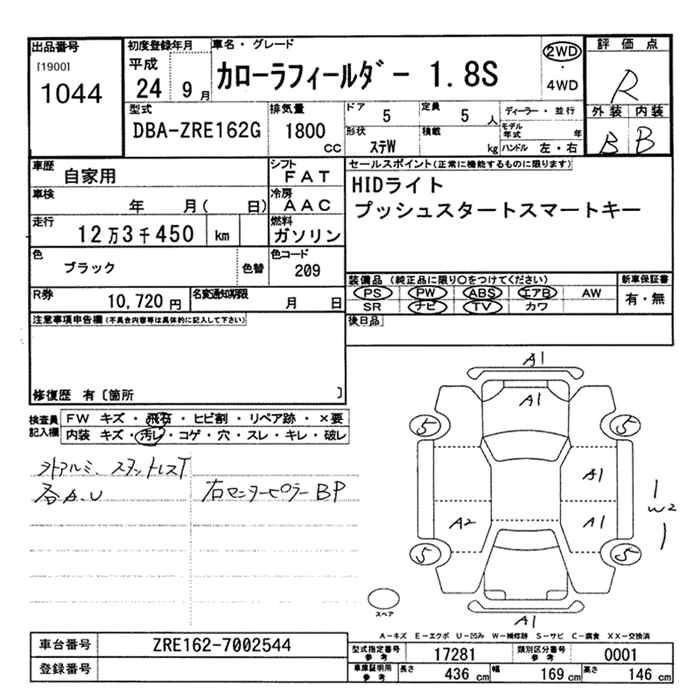 出品番号
[1900]
1044
初度登録年月
平成
24 9月
車名・グレード
カローラフィールダー 1.8S
2WD
・
4WD
評価点
R
外装 内装
B B
型式
DBA-ZRE162G
排気量
1800 CC
ドア
5
定員
5 人
形状
ステW
積載
kg
ディーラー・並行
モデル年式 年
ハンドル 左・右
車歴
自家用
シフト
FAT
車検
年 月( 日)
冷房
AAC
走行
12万3千450 km
燃料
ガソリン
色
ブラック
色替
色コード
209
R券
10,720円
名変通知期限
月 日
セールスポイント(正常に機能するものに限ります)
HIDライト
プッシュスタートスマートキー
装備品(純正品に限り○をつけてください)
新車保証書
PS PW ABS エアB AW
SR ナビ TV カワ
有・無
後日品
注意事項申告欄(不具合内容等は具体的に記入して下さい)
修復歴 有〔箇所 〕
検査員記入欄
FW キズ・飛石・ヒビ割・リペア跡・×要
内装 キズ・汚レ・コゲ・穴・スレ・キレ・破レ
外アルミ、スタットレスT
各A.U
右センターピラーBP
A1
A1
5 5
A1
A2
A1
W2
5 5
スペア
A1
A-キズ E-エクボ U-凹み W-補修跡 S-サビ C-腐食 XX-交換済
車台番号
ZRE162-7002544
登録番号
型式指定番号
参考
17281
類別区分番号
参考
0001
車庫証明用
参考
長さ 436 cm 幅 169 cm 高さ 146 cm